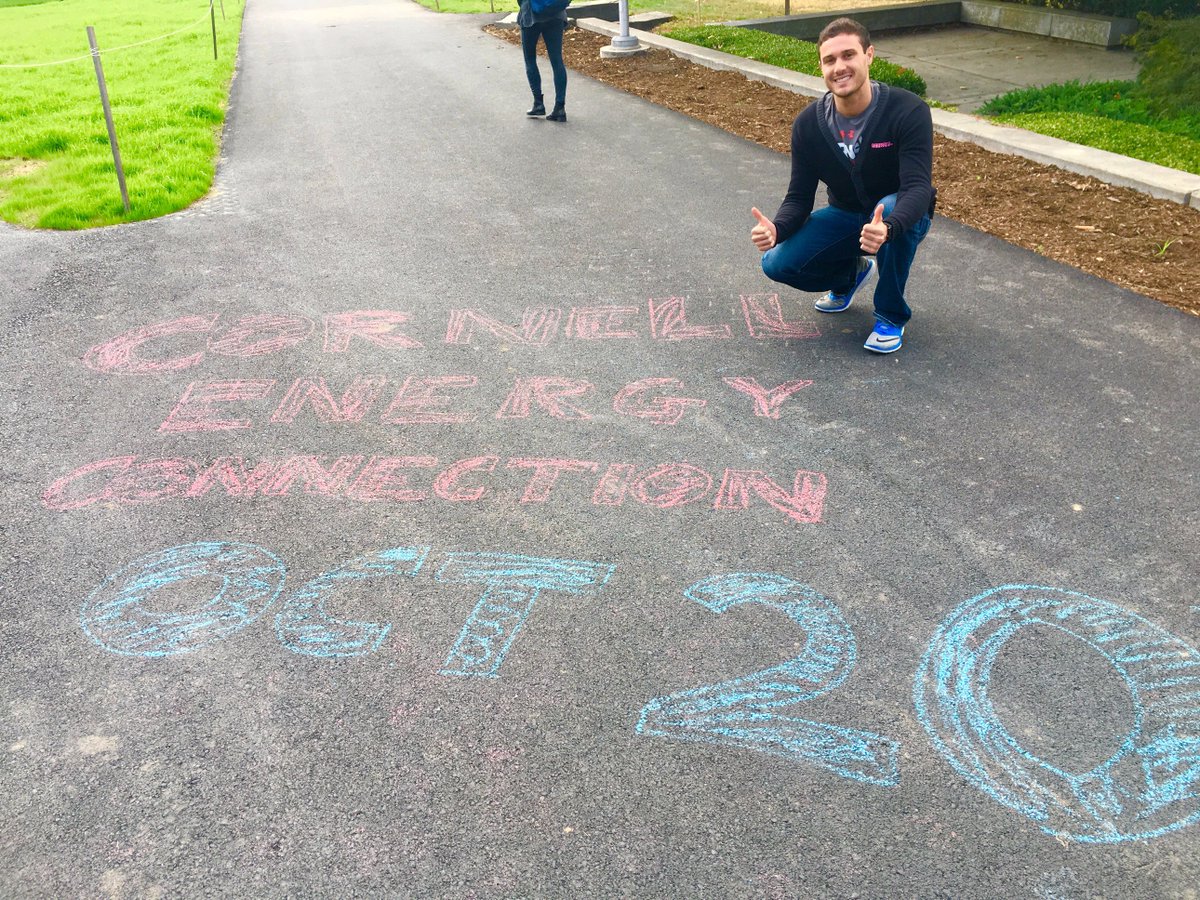 CORNELL
ENERGY
CONNECTION
OCT 20